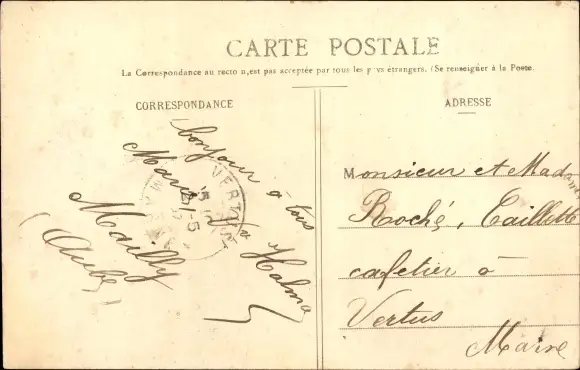 CARTE POSTALE
La Correspondance au recto n'est pas acceptée par tous les pays étrangers. (Se renseigner à la Poste.
CORRESPONDANCE
bonjour à tous
Marie
Mailly
(Aube)
VERTUS
ADRESSE
Monsieur et Madame
Roché, Caillette
cafetier à
Vertus
Marne